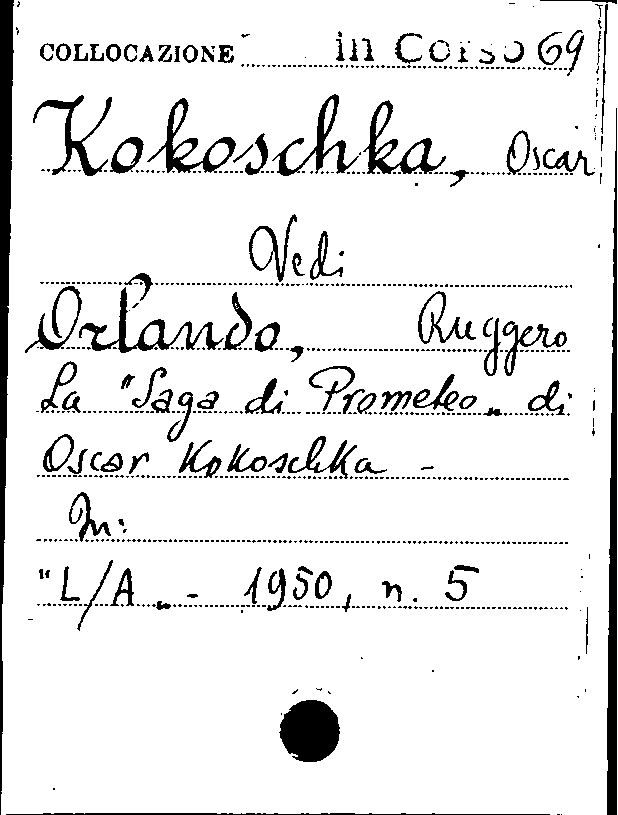 COLLOCAZIONE in Corso 69
Kokoschka, Oscar
Vedi
Orlando, Ruggero
La "Saga di Prometeo„ di
Oscar Kokoschka -
In:
"L/A„ - 1950, n. 5